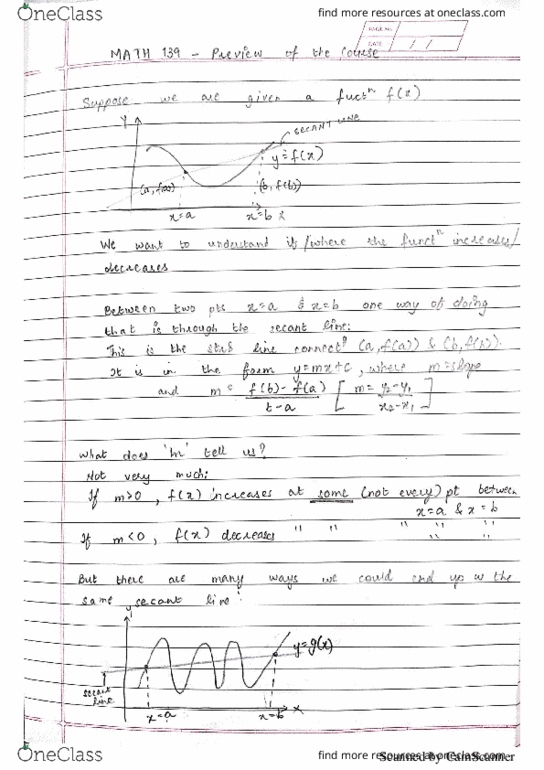 OneClass
find more resources at oneclass.com
PAGE NO.
DATE / /
MATH 139 - Preview of the Course
Suppose we are given a functⁿ f(x)
Y
SECANT LINE
y=f(x)
(a, f(a))
(b, f(b))
x=a
x=b
x
We want to understand if/where the functⁿ increases/
decreases
Between two pts x=a & x=b one way of doing
that is through the secant line:
This is the line connect (a, f(a)) & (b, f(b)).
It is in the form y=mx+c, where m=slope
and m = f(b)-f(a) / t-a [ m = y₂-y₁ / x₂-x₁ ]
What does 'm' tell us?
Not very much:
If m>0, f(x) increases at some (not every) pt between
x=a & x=b
If m<0, f(x) decreases " " " " "
" "
But there are many ways we could end up w the
same secant line:
y
y=g(x)
secant
line
x=a
x=b
x
OneClass
find more resources at oneclass.com
Scanned by CamScanner